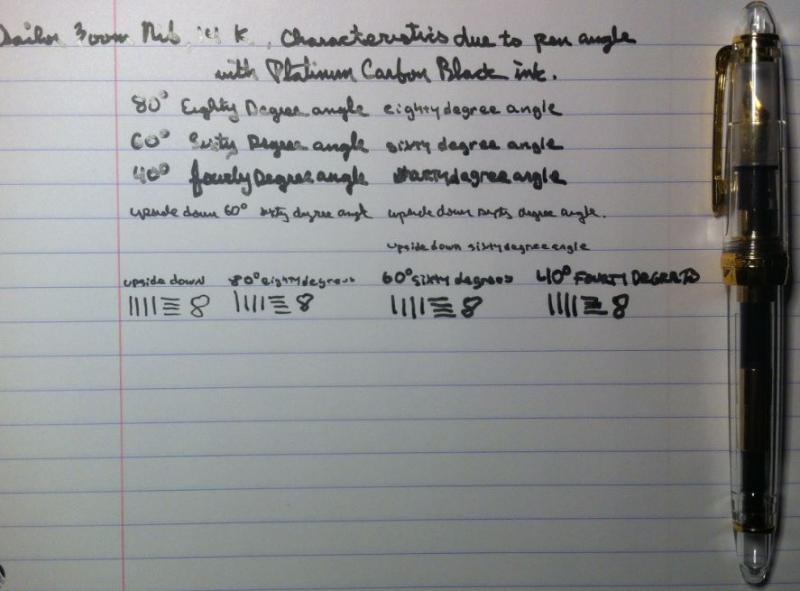 Sailor Zoom Nib, 14 K, Characteristics due to pen angle
with Platinum Carbon Black ink.
80° Eighty Degree angle eighty degree angle
60° Sixty Degree angle sixty degree angle
40° fourty Degree angle degree angle
upside down 60° sixty degree angle upside down sixty degree angle.
upside down sixty degree angle
upside down 80° eighty degrees 60° sixty degrees 40° FOURTY DEGREES
||||≡ 8 ||||≡ 8 ||||≡ 8 ||||≡ 8